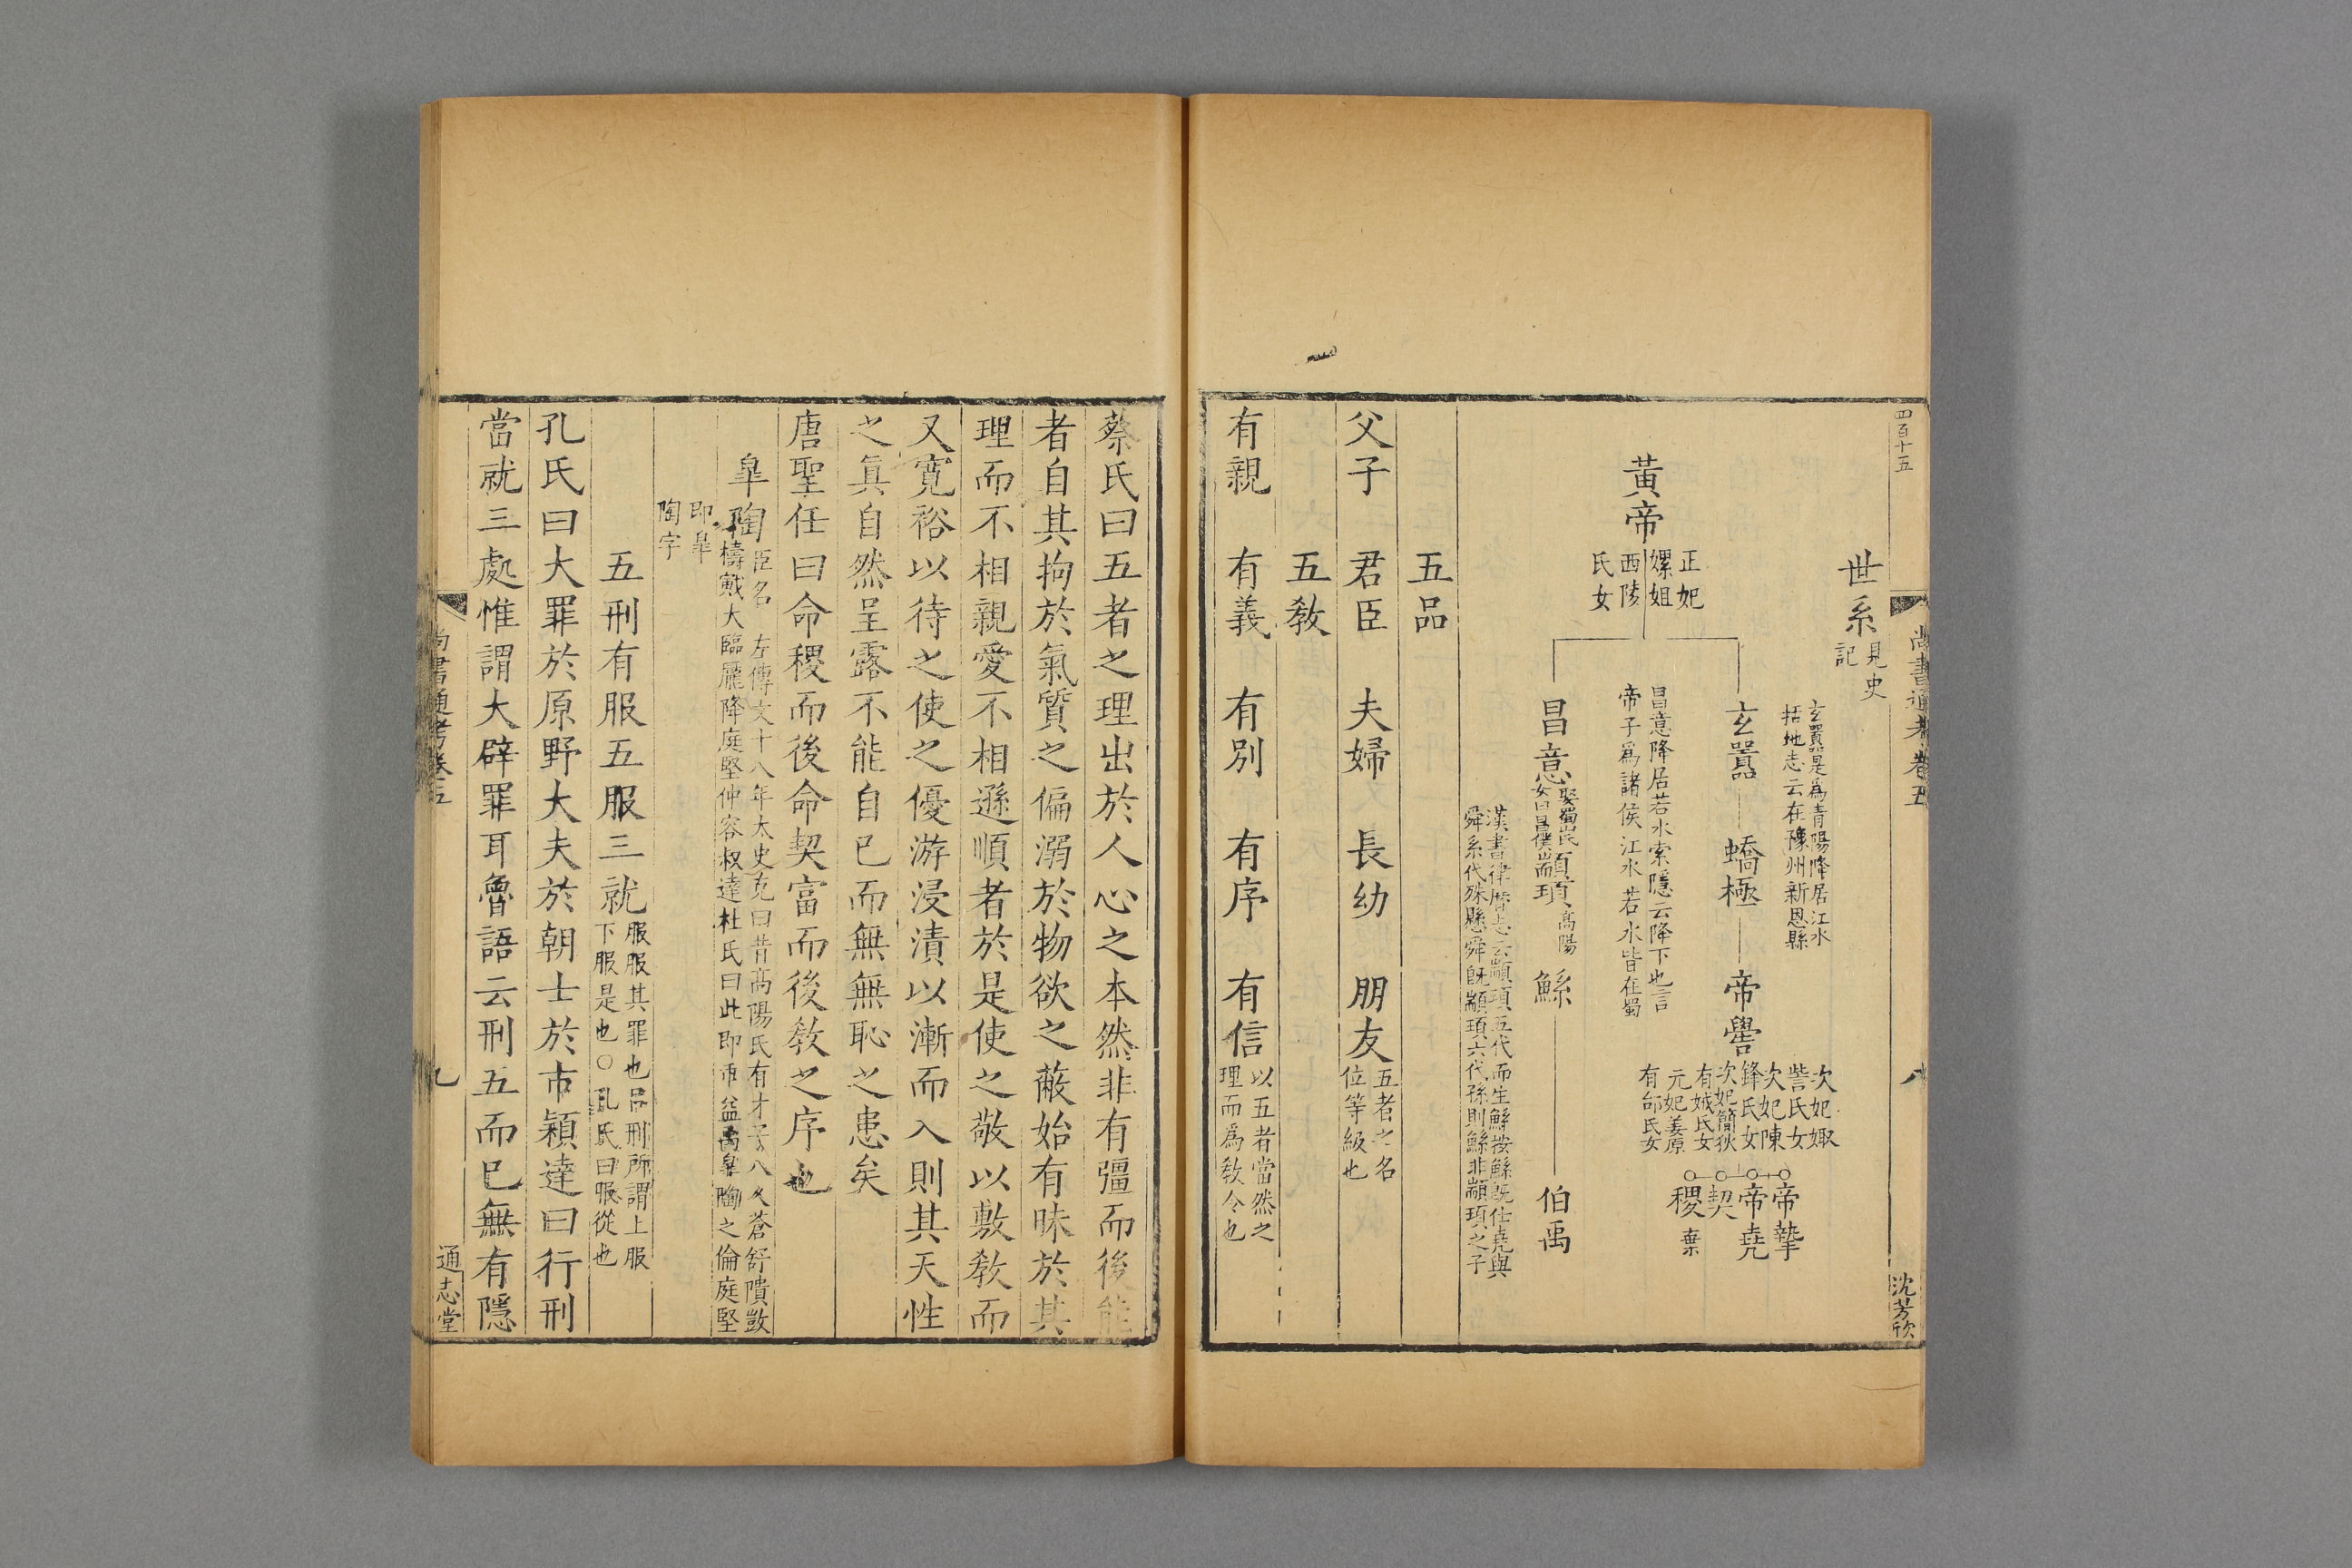 四百十五
尚書通考卷五
八
沈芳欣
世系
見史
記
玄囂是爲青陽降居江水
括地志云在豫州新恩縣
黃帝
正妃
嫘姐
西陵
氏女
玄囂
蟜極
帝嚳
次妃娵
訾氏女
次妃陳
鋒氏女
次妃簡狄
有娀氏女
元妃姜原
有邰氏女
帝摯
帝堯
契
稷
棄
昌意降居若水索隱云降下也言
帝子爲諸侯江水若水皆在蜀
昌意
娶蜀山氏
女曰昌僕
顓頊
高陽
鯀
伯禹
漢書律曆志云顓頊五代而生鯀按鯀旣仕堯與
舜系代殊懸舜旣顓頊六代孫則鯀非顓頊之子
五品
父子 君臣 夫婦 長幼 朋友
五者之名
位等級也
五敎
有親 有義 有別 有序 有信
以五者當然之
理而爲敎令也
蔡氏曰五者之理出於人心之本然非有彊而後能
者自其拘於氣質之偏溺於物欲之蔽始有昧於其
理而不相親愛不相遜順者於是使之敬以敷敎而
又寬裕以待之使之優游浸漬以漸而入則其天性
之眞自然呈露不能自已而無無恥之患矣
唐聖任曰命稷而後命契富而後敎之序也
皐陶
臣名 左傳文十八年太史克曰昔高陽氏有才子八人蒼舒隤敳
檮戭大臨尨降庭堅仲容叔達杜氏曰此即垂益禹皐陶之倫庭堅
即皐
陶字
五刑有服五服三就
服服其罪也呂刑所謂上服
下服是也○孔氏曰服從也
孔氏曰大罪於原野大夫於朝士於市穎達曰行刑
當就三處惟謂大辟罪耳魯語云刑五而已無有隱
尚書通考卷五
九
通志堂